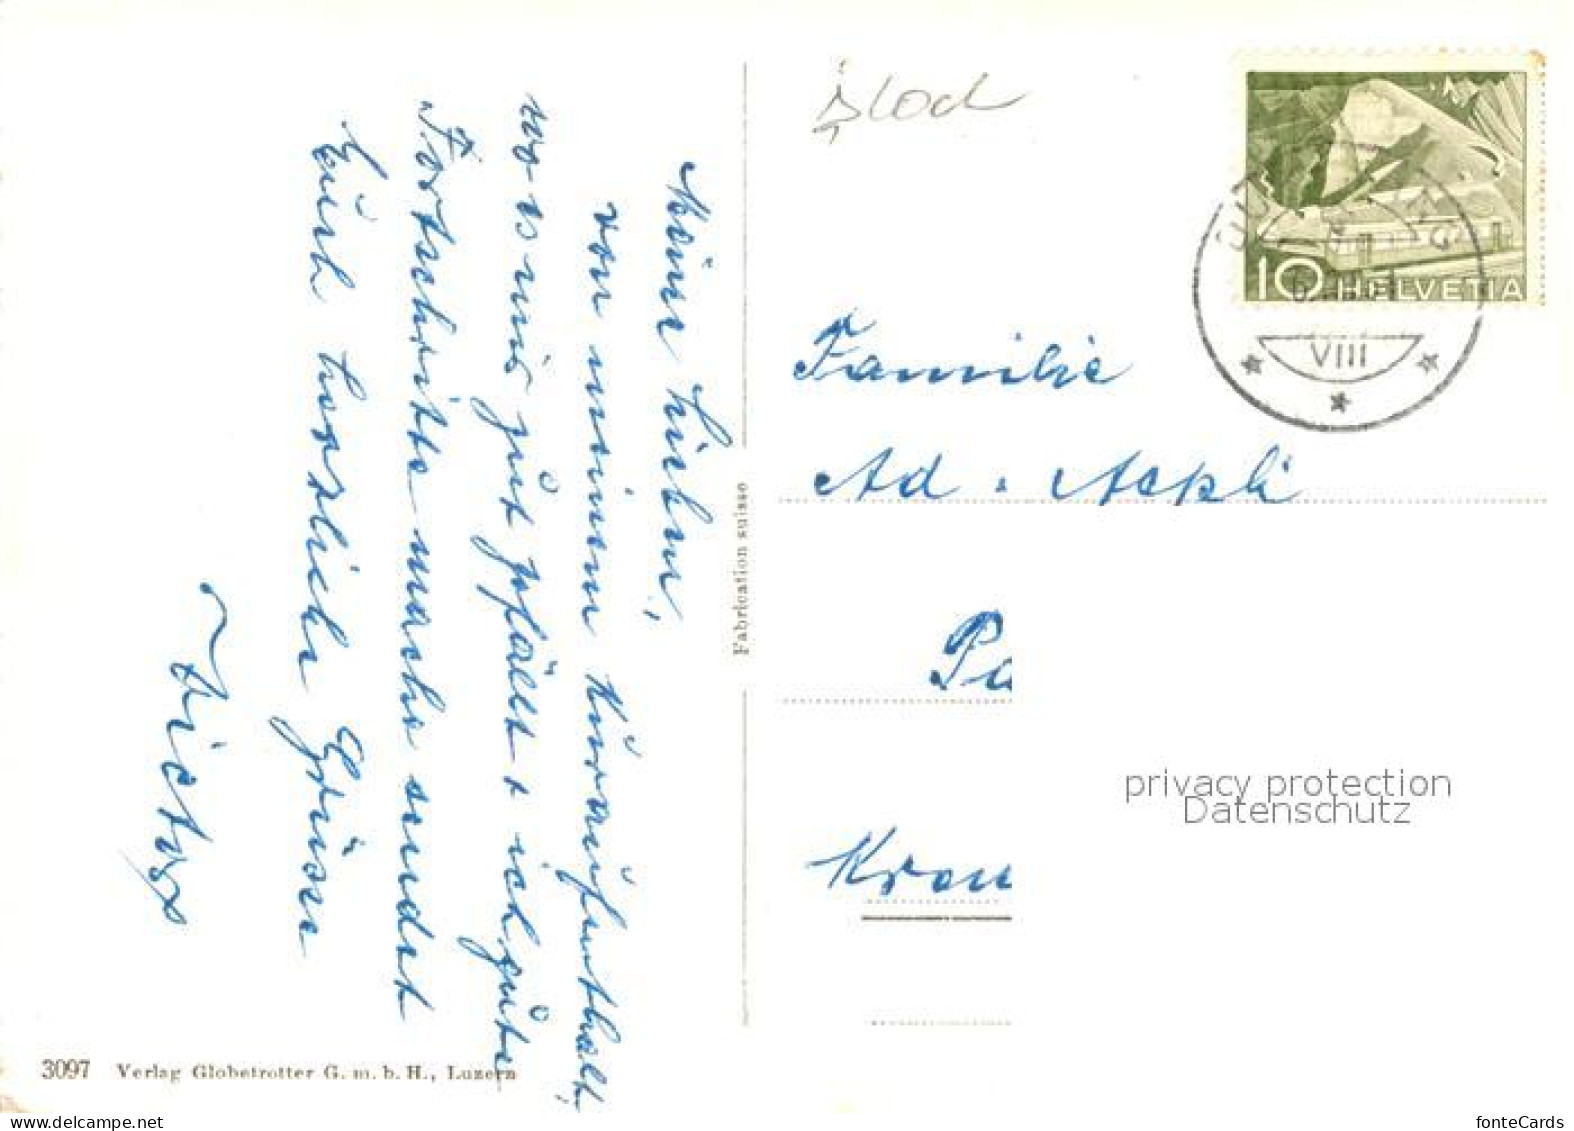 Meine Lieben,
von meinem Kuraufenthalt,
wo es mir gut gefällt + ich gute
Fortschritte mache sendet
Euch herzliche Grüsse
Victor
Fabrication suisse
3097 Verlag Globetrotter G. m. b. H., Luzern
10 HELVETIA
VIII
Familie
Ad. Aepli
privacy protection
Datenschutz
fonteCards